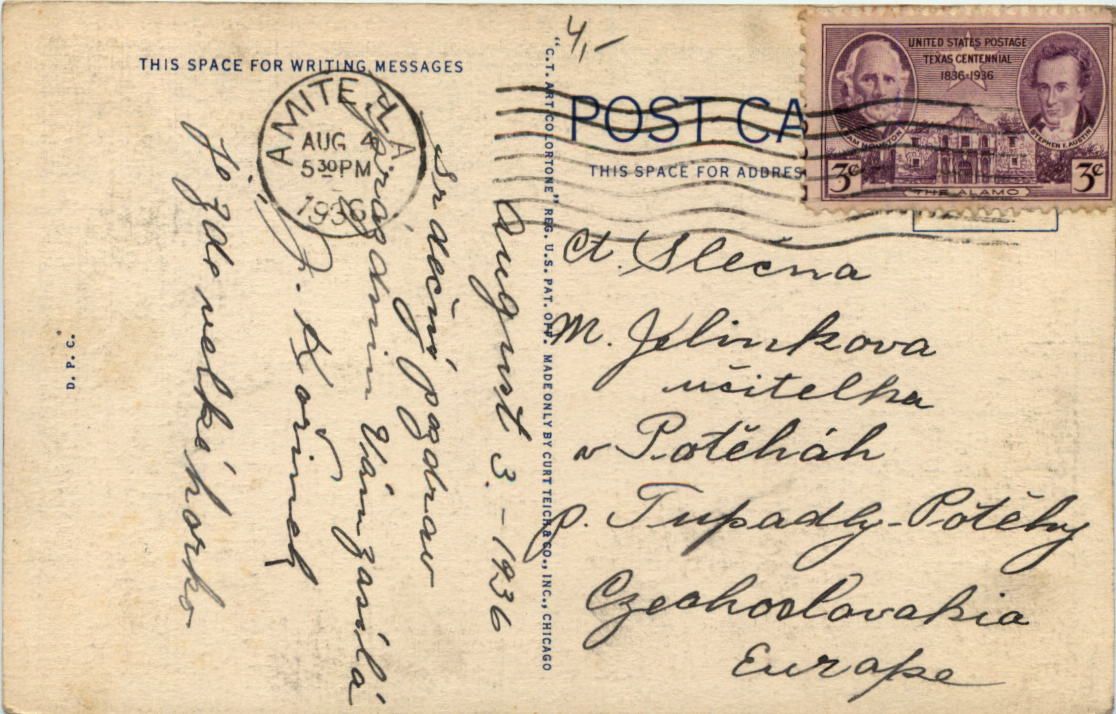 4,-
THIS SPACE FOR WRITING MESSAGES
AMITE, LA.
AUG 4
5 30 PM
1936
August 3. - 1936
Srdečný pozdrav
s prázdnin Vám zasílá
J. Kořinek
Je zde velké horko
D. P. C.
"C. T. ART COLORTONE" REG. U.S. PAT. OFF. MADE ONLY BY CURT TEICH & CO., INC., CHICAGO
POST CA
THIS SPACE FOR ADDRES
UNITED STATES POSTAGE
TEXAS CENTENNIAL
1836-1936
SAM HOUSTON
STEPHEN F. AUSTIN
3¢ 3¢
THE ALAMO
Ct. Slečna
M. Jelinkova
učitelka
v Potěháh
p. Tupadly-Potěhy
Czechoslovakia
Europe